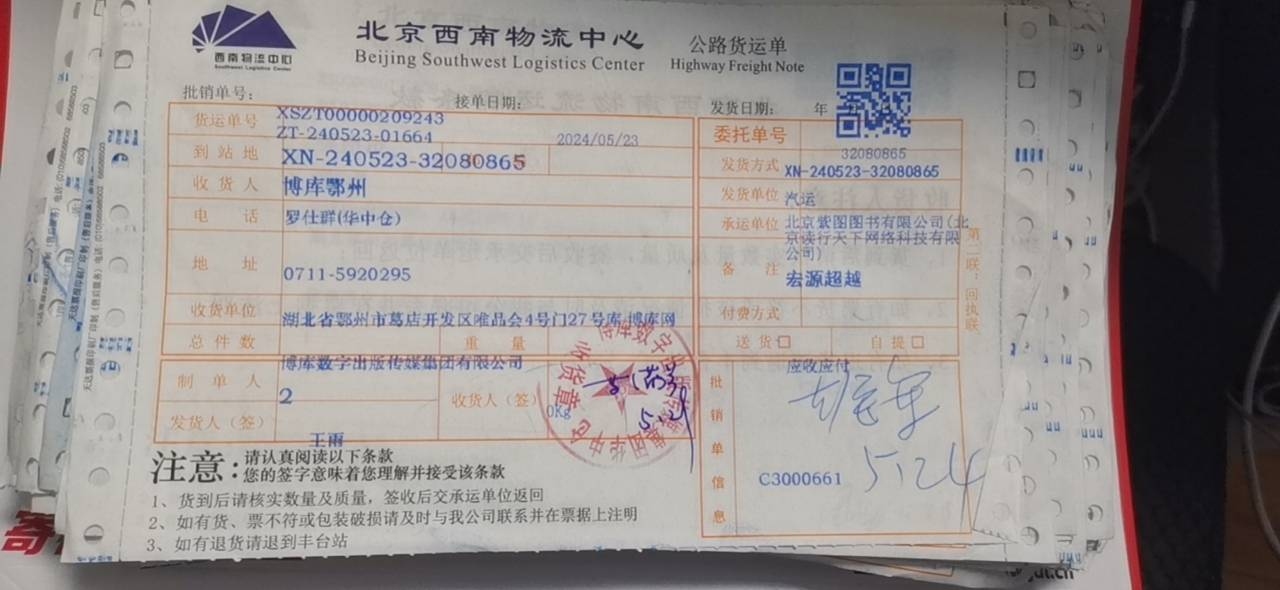 西南物流中心
Southwest Logistics Center
北京西南物流中心
Beijing Southwest Logistics Center
公路货运单
Highway Freight Note
批销单号：
接单日期：
发货日期：
年
货运单号
XSZT00000209243
ZT-240523-01664
2024/05/23
委托单号
32080865
到站地
XN-240523-32080865
发货方式
XN-240523-32080865
收货人
博库鄂州
发货单位
汽运
电 话
罗仕群(华中仓)
承运单位
北京紫图图书有限公司(北
京读行天下网络科技有限
公司)
地 址
0711-5920295
备 注
宏源超越
收货单位
湖北省鄂州市葛店开发区唯品会4号门27号库 博库网
付费方式
总件数
重 量
送货□
自提□
博库数字出版传媒集团有限公司
应收应付
制单人
2
收货人（签）
0Kg
5.24
发货人（签）
王雨
批销单信息
C3000661
5.24
收货章
第二联：回执联
注意：
请认真阅读以下条款
您的签字意味着您理解并接受该条款
1、货到后请核实数量及质量，签收后交承运单位返回
2、如有货、票不符或包装破损请及时与我公司联系并在票据上注明
3、如有退货请退到丰台站
寄